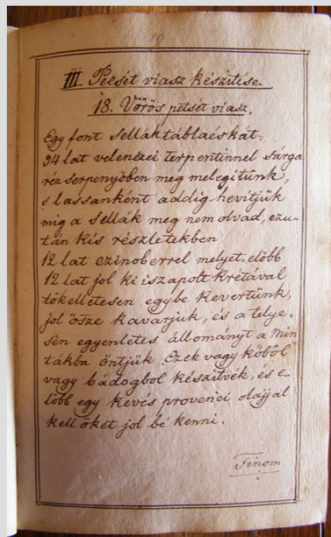 III. Pecsét viasz készitése.
18. Vörös petsét viasz.
Egy font sellaktáblácskát
34 lat velenczei terpentinnel sárga
réz serpenyöben meg melegitünk,
s lassanként addig hevitjük
mig a sellák meg nem olvad, ezu-
tán kis részletekben
12 lat czinoberrel melyet elöbb
12 lat jol ki iszapolt krétával
tökelletesen egybe kevertünk,
jol össze kavarjuk, és a telje-
sen egyenletes állományt a min
tákba öntjük. Ezek vagy köböl
vagy bádogbol készitvék, és e-
löbb egy kevés provenci olajjal
kell öket jol bé kenni.
Finom